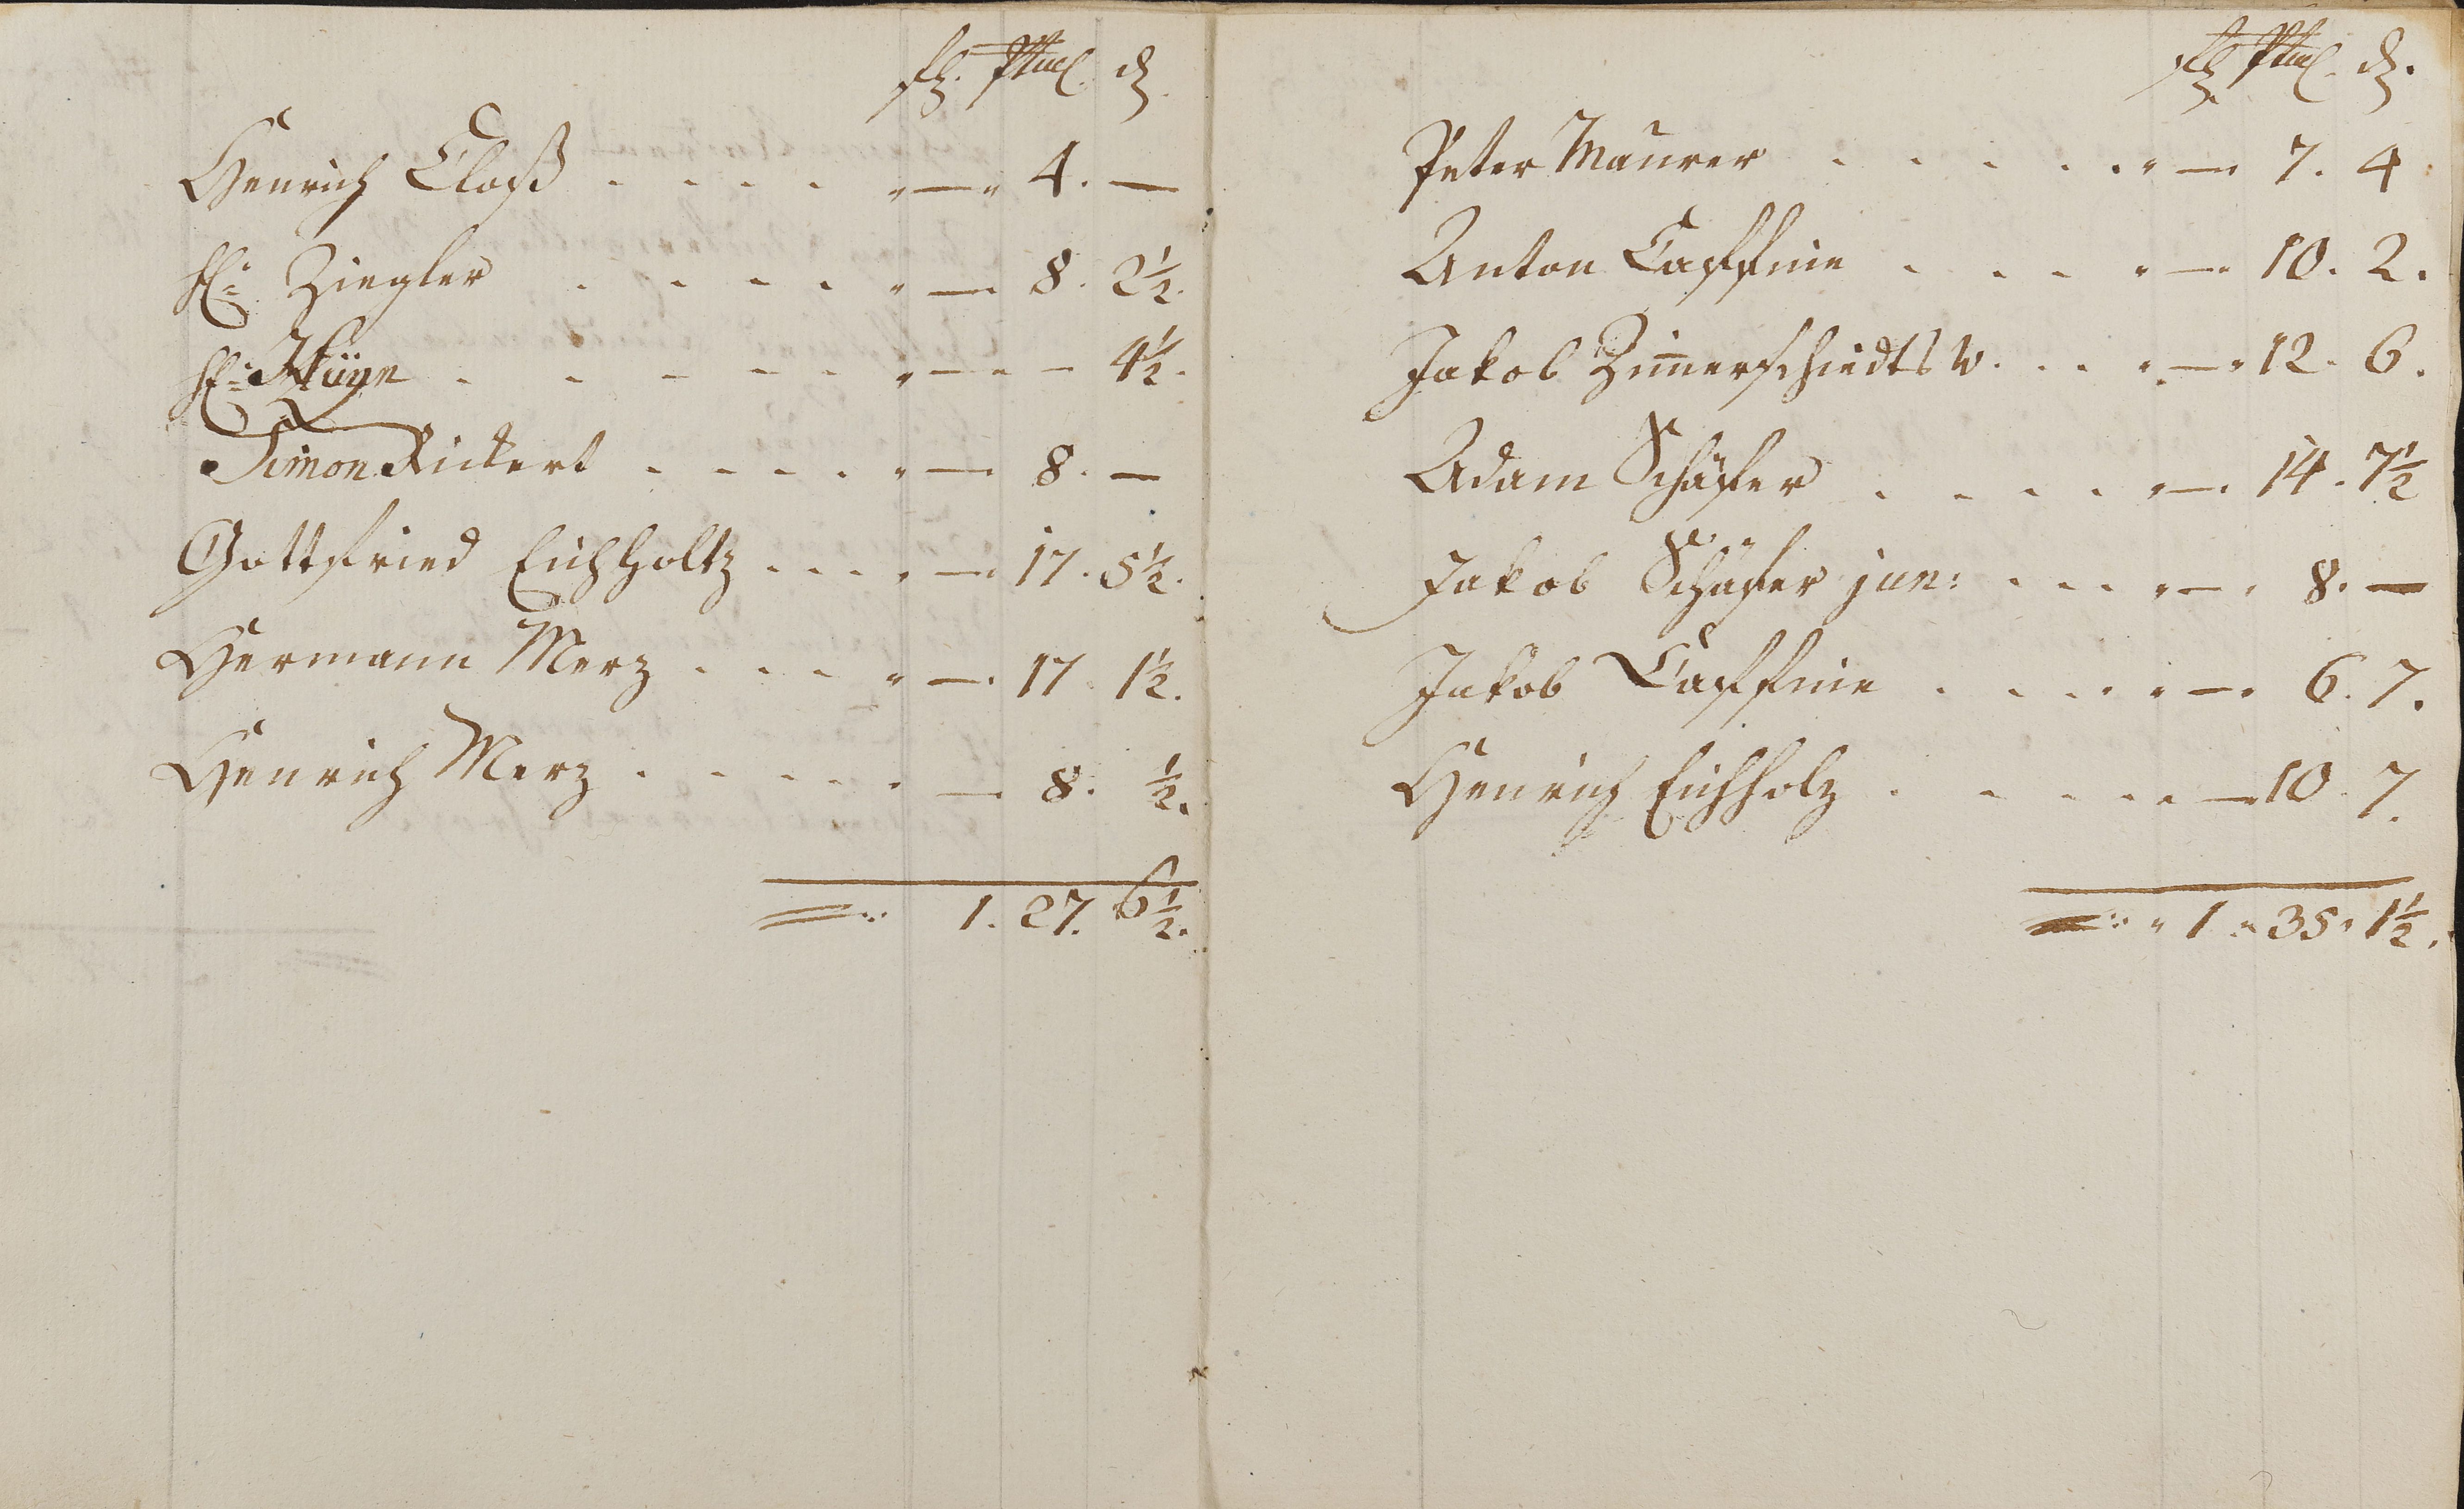 Henrich Cloß . . . . „—„ 4. —
H: Ziegler . . . . „—. 8. 2½.
H: . . . . . „—.— 4½.
Simon Rickert . . . . „— 8. —
Gottfried Eichholtz . . . „—. 17. 5½.
Hermann Merz . . . „—. 17. 1½.
Henrich Merz . . . . . —. 8. ½.
1. 27. 6½.
Peter Maurer . . . . . „—. 7. 4
Anton Caffine . . . „—. 10. 2.
Jakob Zimerschiedts W. . . „—. 12. 6.
Adam Schäfer . . . . „—. 14. 7½
Jakob Schäfer jun: . . . „—. 8. —
Jakob Caffine . . . . „—. 6. 7.
Henrich Eichholz . . . . „—10. 7.
„ 1 „ 35. 1½.